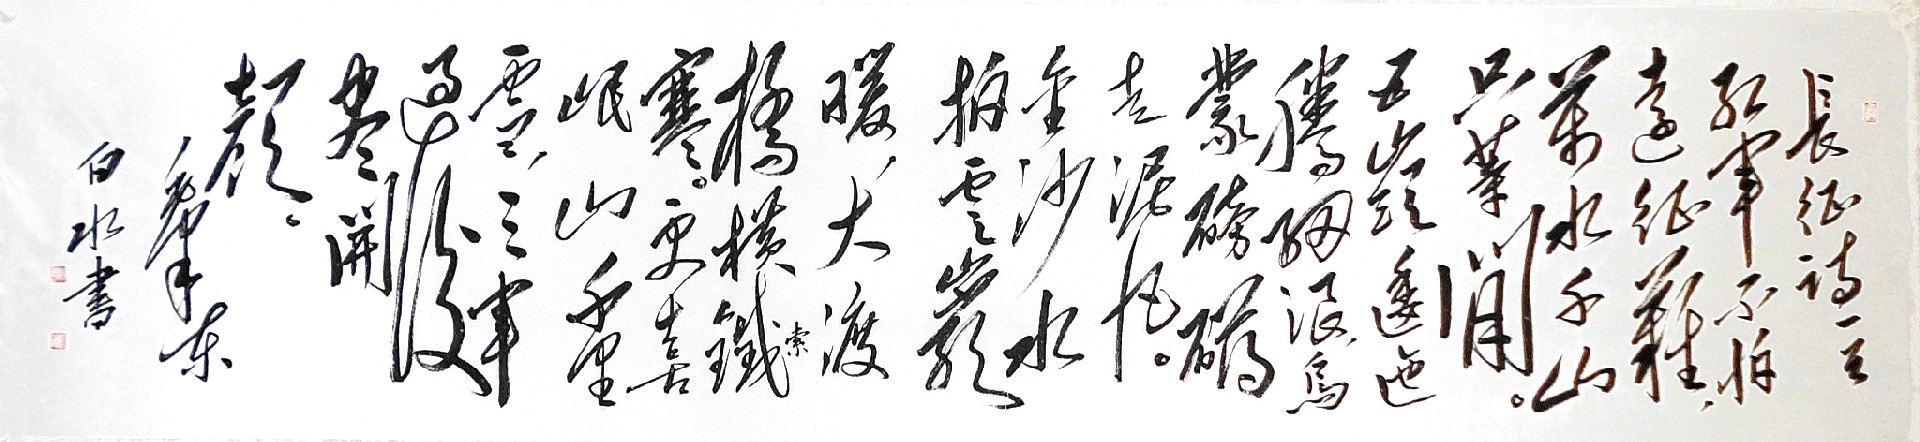 長征詩一首
紅軍不怕
遠征難，
萬水千山
只等閒。
五嶺逶迤
騰細浪，烏
蒙磅礴
走泥丸。
金沙水
拍雲巖
暖，大渡
橋橫鐵索
寒。更喜
岷山千里
雪，三軍
過後
盡開
顏。
毛澤東
白水書